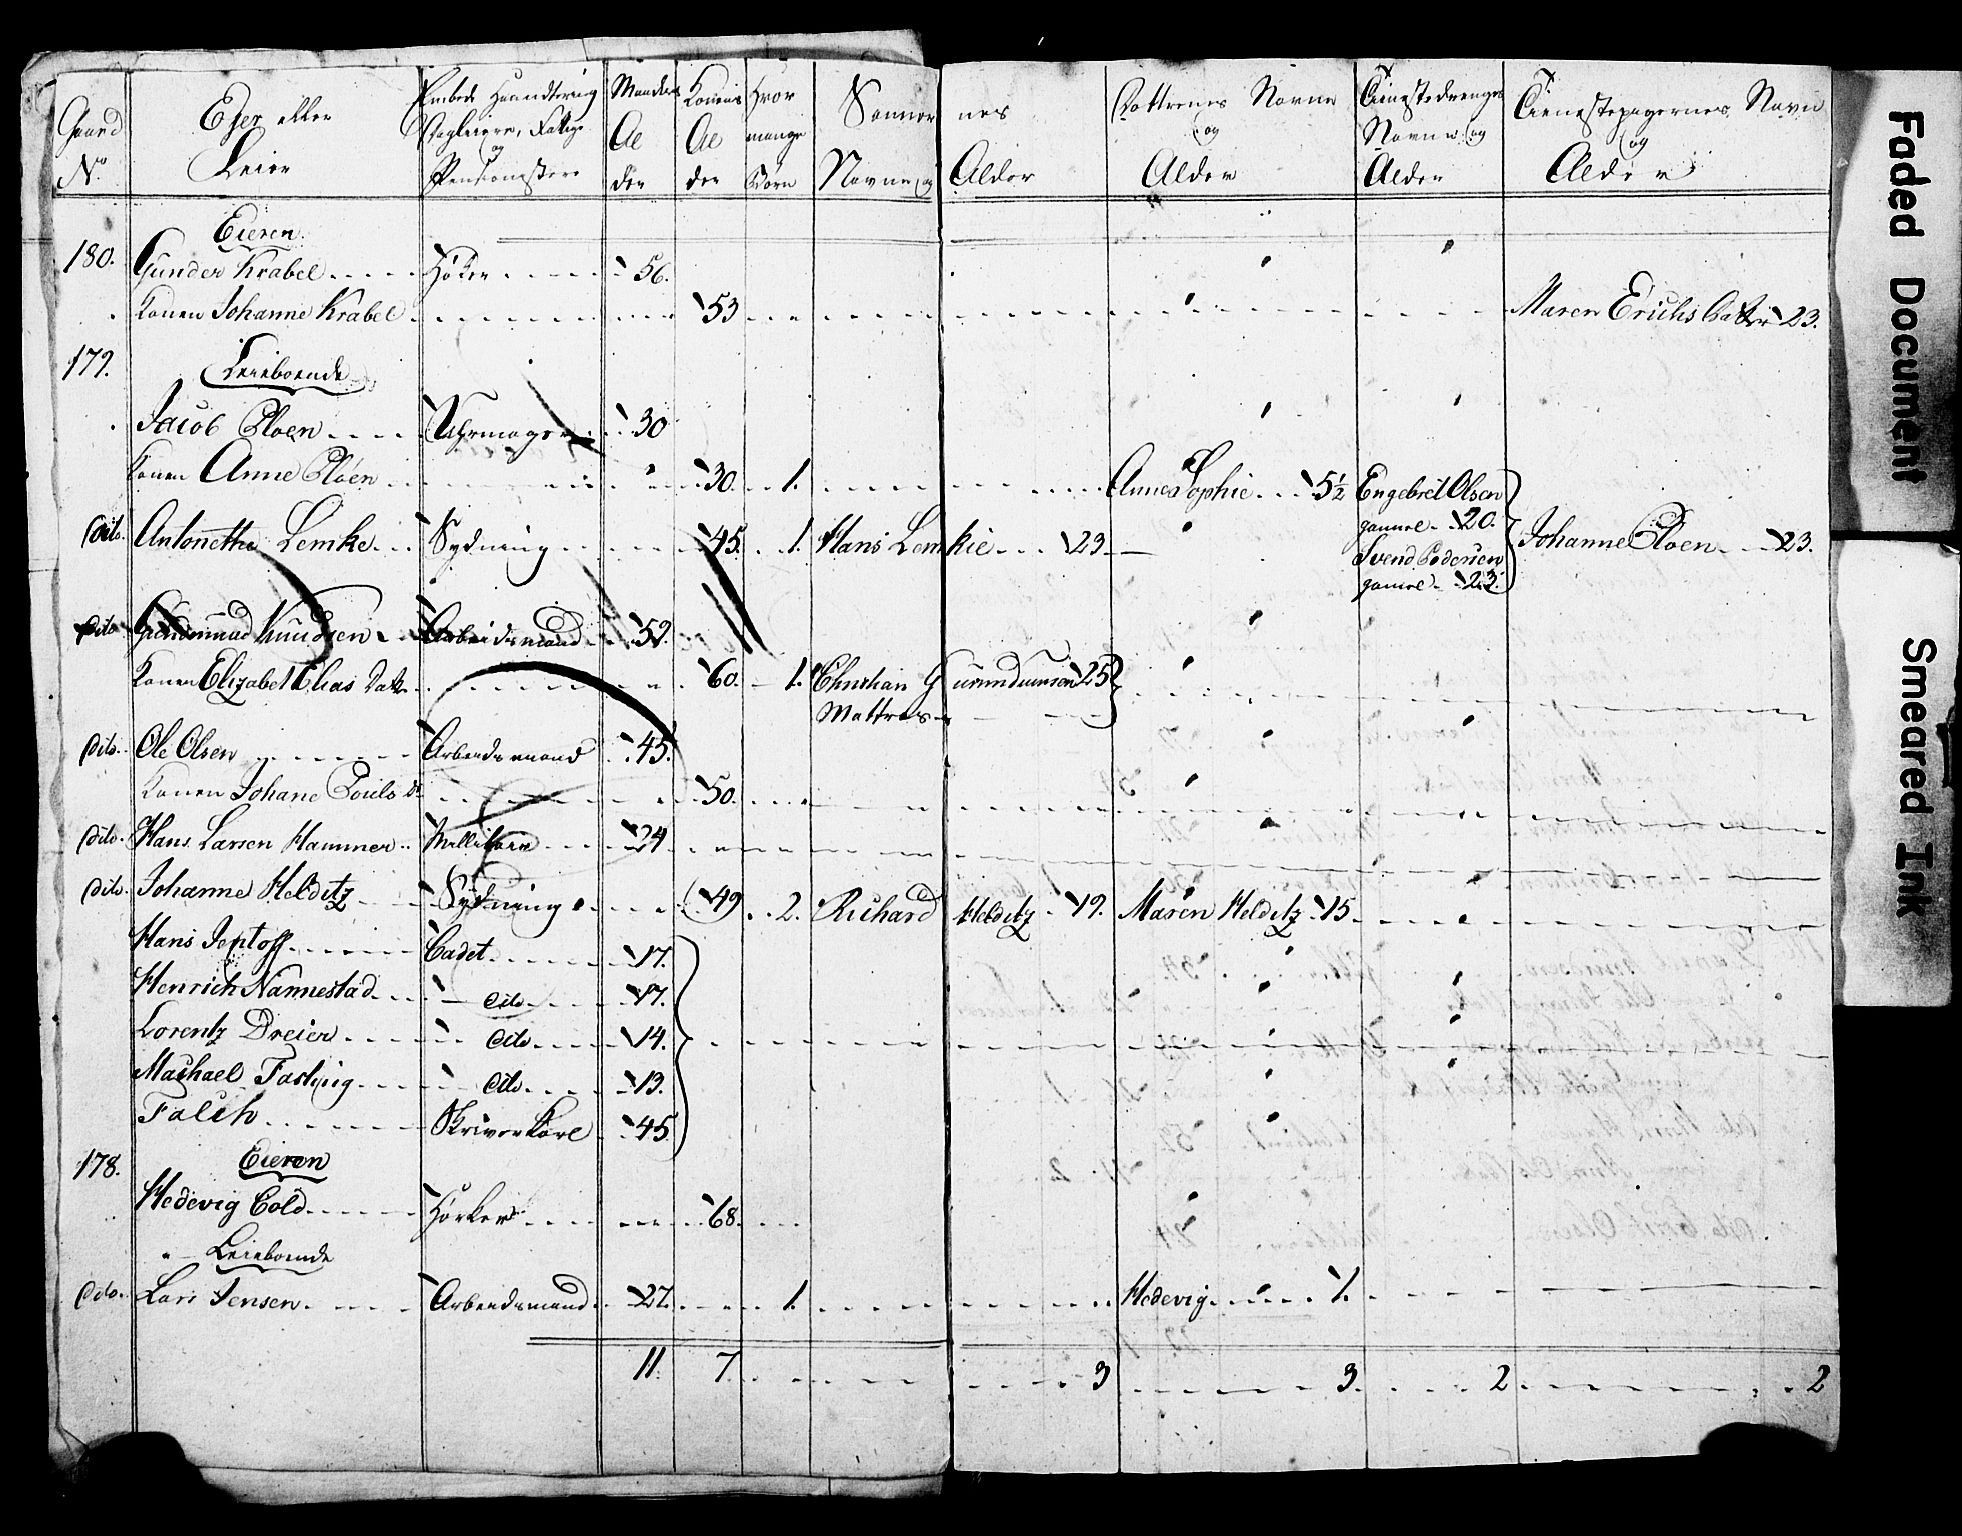 Gaard No
Eyer eller Leier
Embede Haandtering Dagleiere, Fattige og Pensionister
Mandens Alder
Konens Alder
Hvor mange Børn
Sønnernes Navne og Alder
Dottrenes Navne og Alder
Tienestedrenges Navne og Alder
Tienestepigernes Navn og Alder
Eieren
180. Gunder Krabel Høker 56.
Konen Johanne Krabel 53 Maren Erichs Datter 23.
179. Leieboende
Jacob Ploen Uhrmager 30
Konen Anne Ploen 30. 1. Anne Sophie 5½ Engebret Olsen
gamel 20.
Dito Antonethe Lemke Sydning 45. 1. Hans Lemkie 23 Svend Pedersen Johanne Ploen 23.
gamel 23.
Dito Knudsen Arbeidsmand 59.
Konen Elizabet Elias Datr 60. 1. Christian Gurundumsen 25
Mattros
Dito. Ole Olsen Arbeidsmand 45.
Konen Johane Pouls D. 50.
Dito. Hans Larsen Hammer Millitær 24
Dito. Johanne Helditz Sydning 49 2. Richard Helditz 19. Maren Helditz 15
Hans Jentoff Cadet 17.
Henrich Nannestad Dito 17.
Lorentz Dreier Dito 14.
Machael Fasting Dito 13.
Falch Skriverkarl 45
178. Eieren
Hedevig Cold Hørker 68.
Leieboende
Dito. Lars Jensen Arbeidsmand 27. 1. Hedevig 1.
11 7 3 3 2 2
Faded Document
Smeared Ink